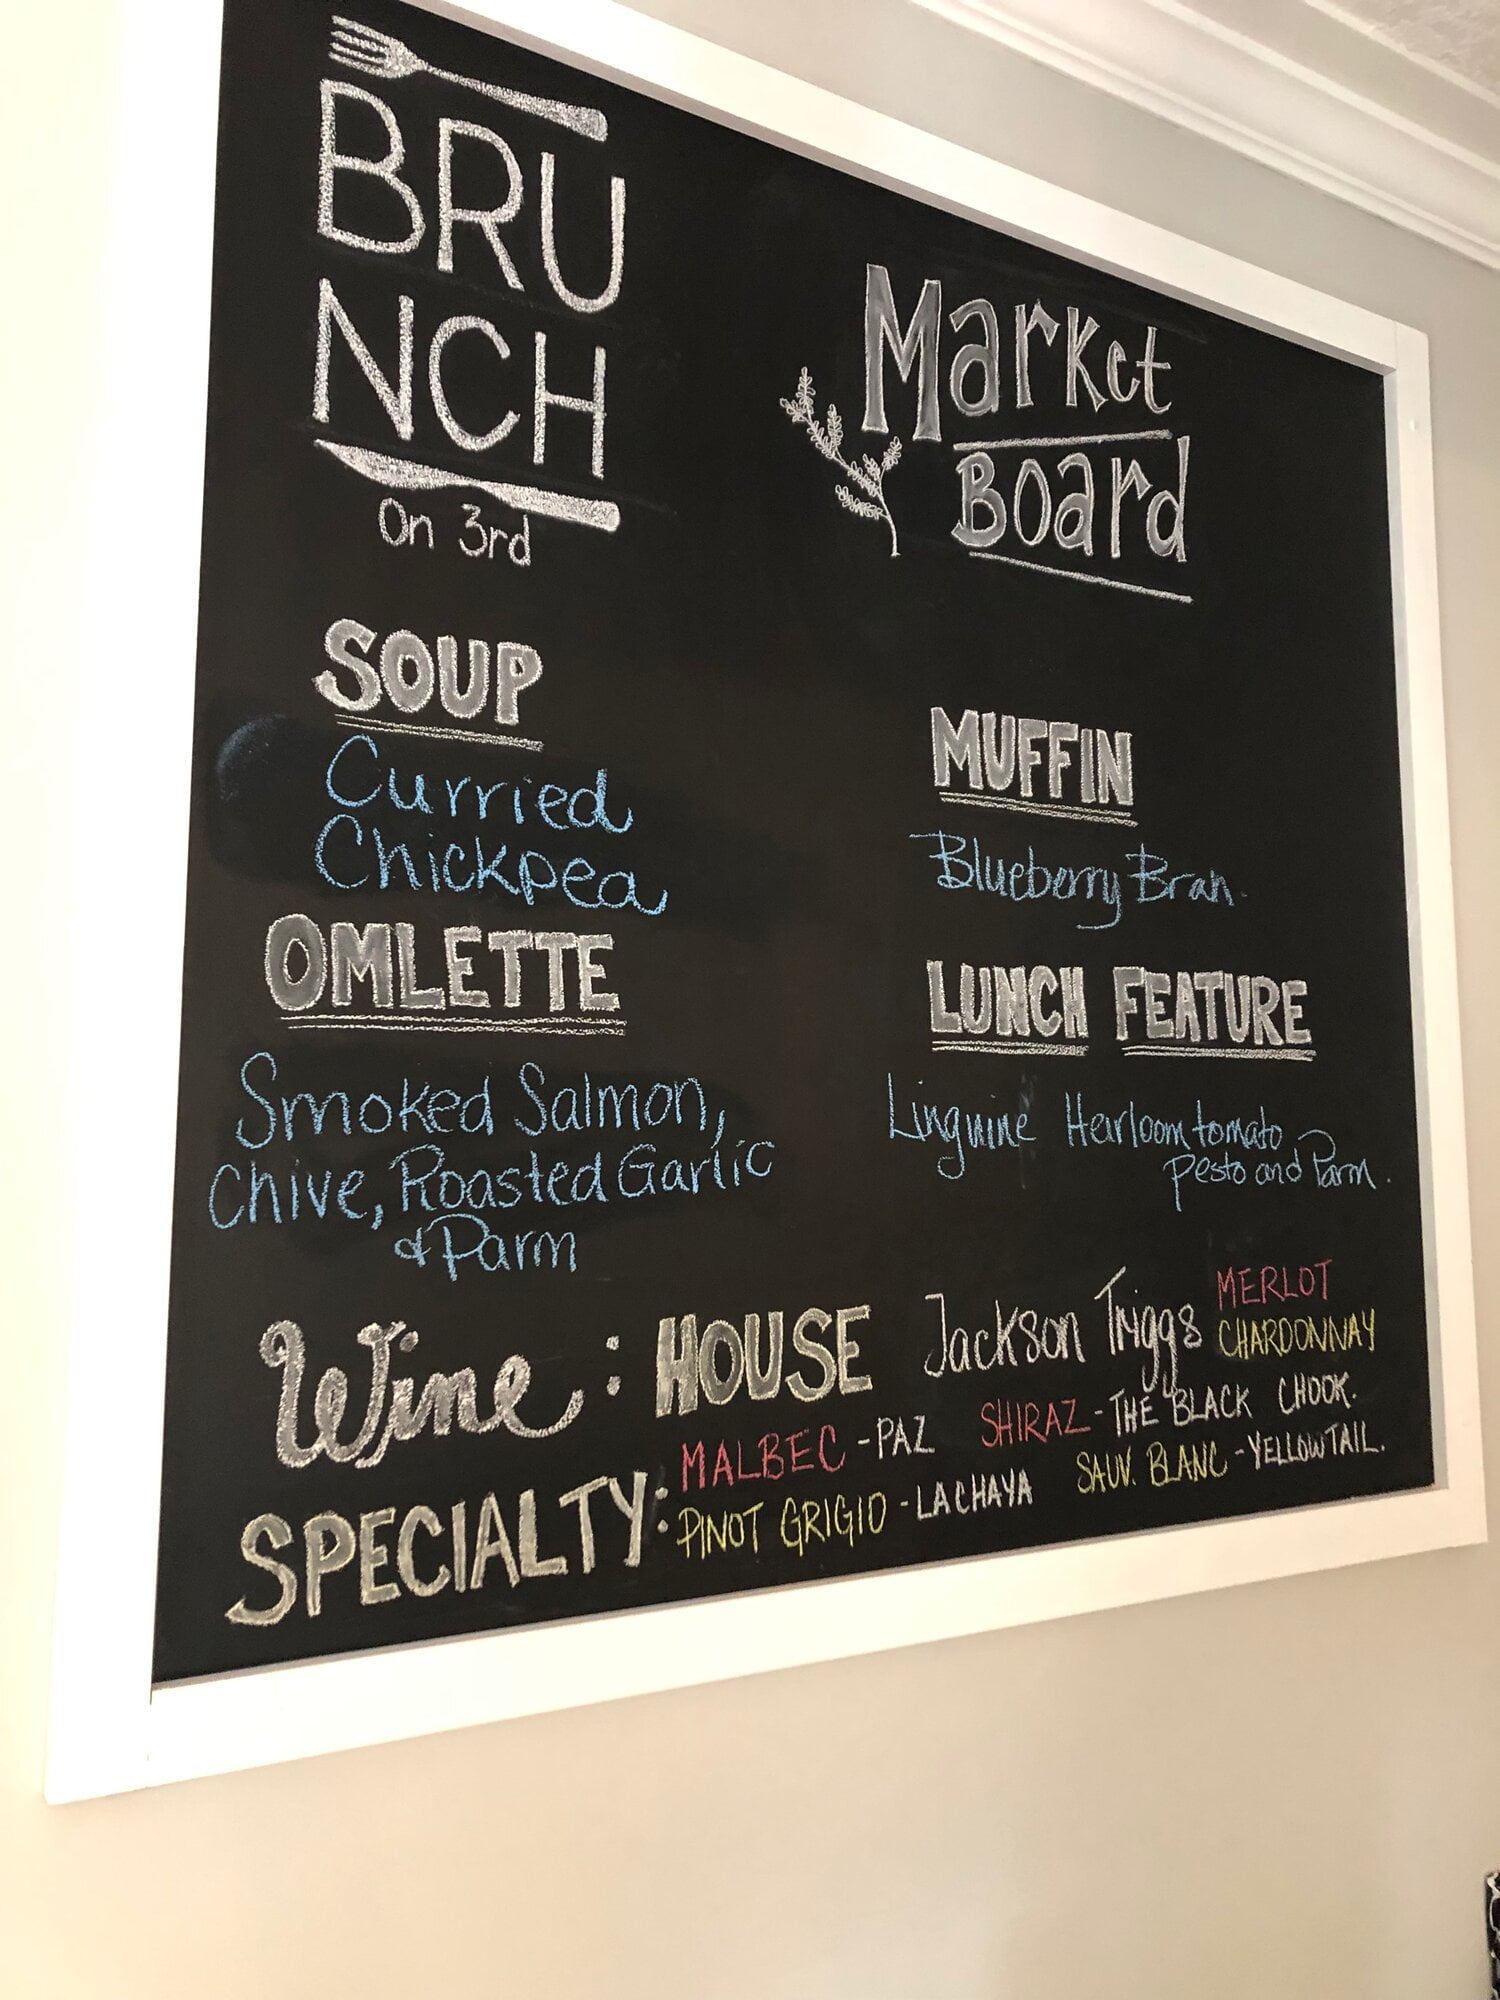 BRU
NCH
On 3rd
Market
Board
SOUP
Curried
Chickpea
OMLETTE
Smoked Salmon,
Chive, Roasted Garlic
& Parm
MUFFIN
Blueberry Bran.
LUNCH FEATURE
Linguine Heirloom tomato
pesto and Parm.
Wine: HOUSE Jackson Triggs MERLOT
CHARDONNAY
SPECIALTY: MALBEC - PAZ SHIRAZ - THE BLACK CHOOK.
PINOT GRIGIO - LA CHAYA SAUV. BLANC - YELLOWTAIL.